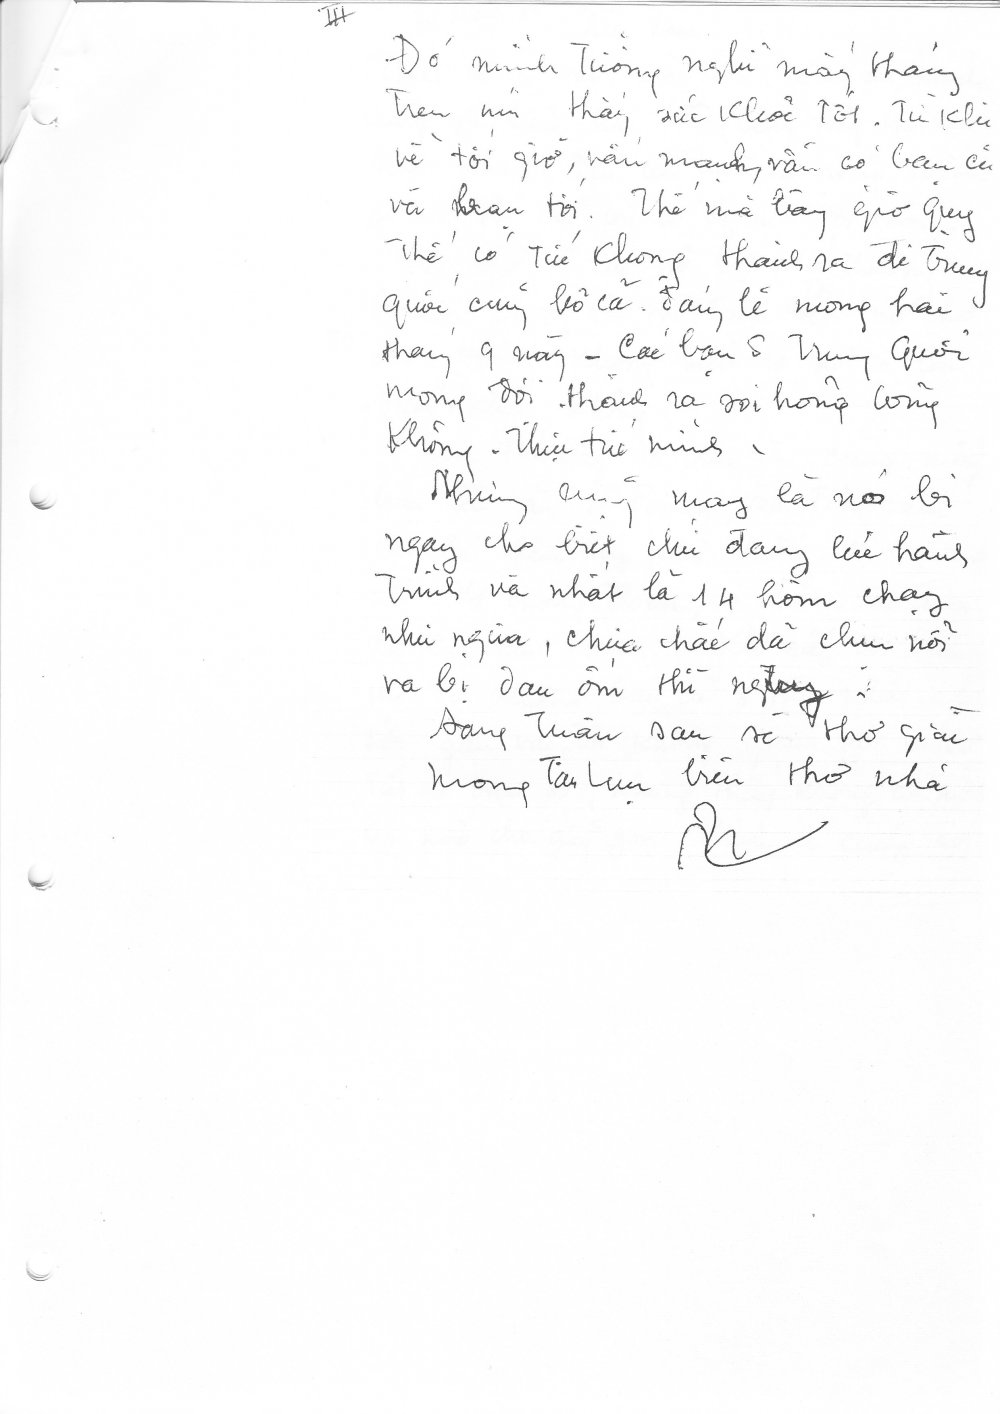 III
Đó mình tưởng nghỉ mấy tháng
trên núi thấy sức khoẻ tốt. Từ khi
về tới giờ, vẫn mạnh, vẫn có ban cũ
và bạn tới. Thế mà bây giờ quỵ
thế có tức không thành ra đi Trung
Quốc cũng bỏ cả. Đáng lẽ mong hai
tháng 9 này - Các bạn ở Trung Quốc
mong đợi thành ra xôi hỏng bỏng
không. Thật tức mình.
Nhưng cũng may là nó bị
ngay cho biết chứ đang lúc hành
trình và nhất là 14 hôm chạy
như ngựa, chưa chắc đã chịu nổi
và bị đau ốm thì
Sang tuần sau sẽ thơ giấi
Mong biên thơ nhá